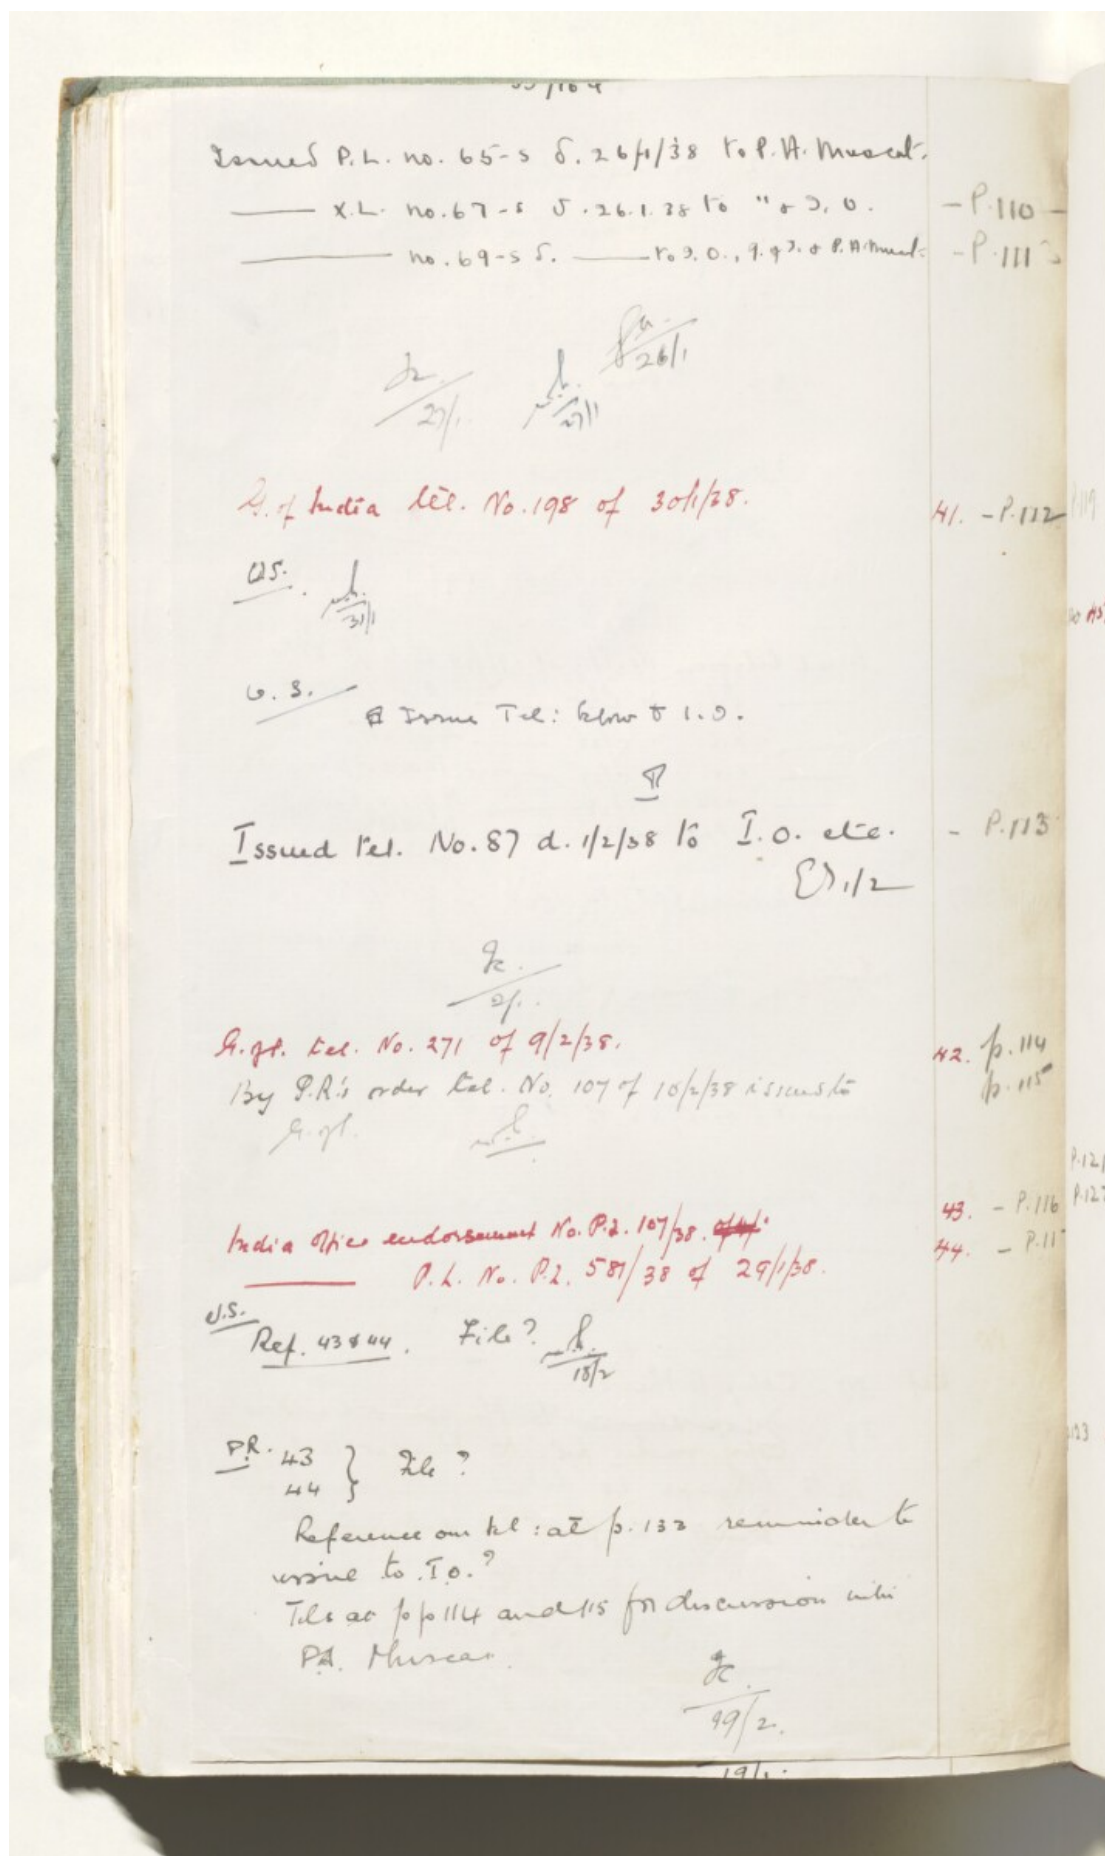 Issued P.L. no. 65-S d. 26/1/38 to P.A. Muscat.
X.L. no. 67-S d. 26.1.38 to " & I.O. - P.110 -
no. 69-S d. to I.O., G. of I. & P.A. Muscat - P.111
26/1
27/1
27/1
G. of India tel. No. 198 of 30/1/38. 41. - P.112
P.119
U.S.
31/1
U.S.
Issue Tel: below to I.O.
Issued tel. No. 87 d. 1/2/38 to I.O. etc. - P.113
1/2
2/.
tel. No. 271 of 9/2/38. 42. p. 114
By P.R.'s order tel. No. 107 of 10/2/38 issued to p. 115
India Office endorsement No. P.Z. 107/38. 43. - P.116
P.L. No. P.Z. 581/38 of 29/1/38. 44. - P.11
U.S.
Ref. 43 & 44. File?
18/2
P.R. 43 } File?
44
Reference our tel: at p. 132 reminder to
issue to I.O.?
Tels at pp 114 and 115 for discussion with
P.A. Muscat.
19/2.